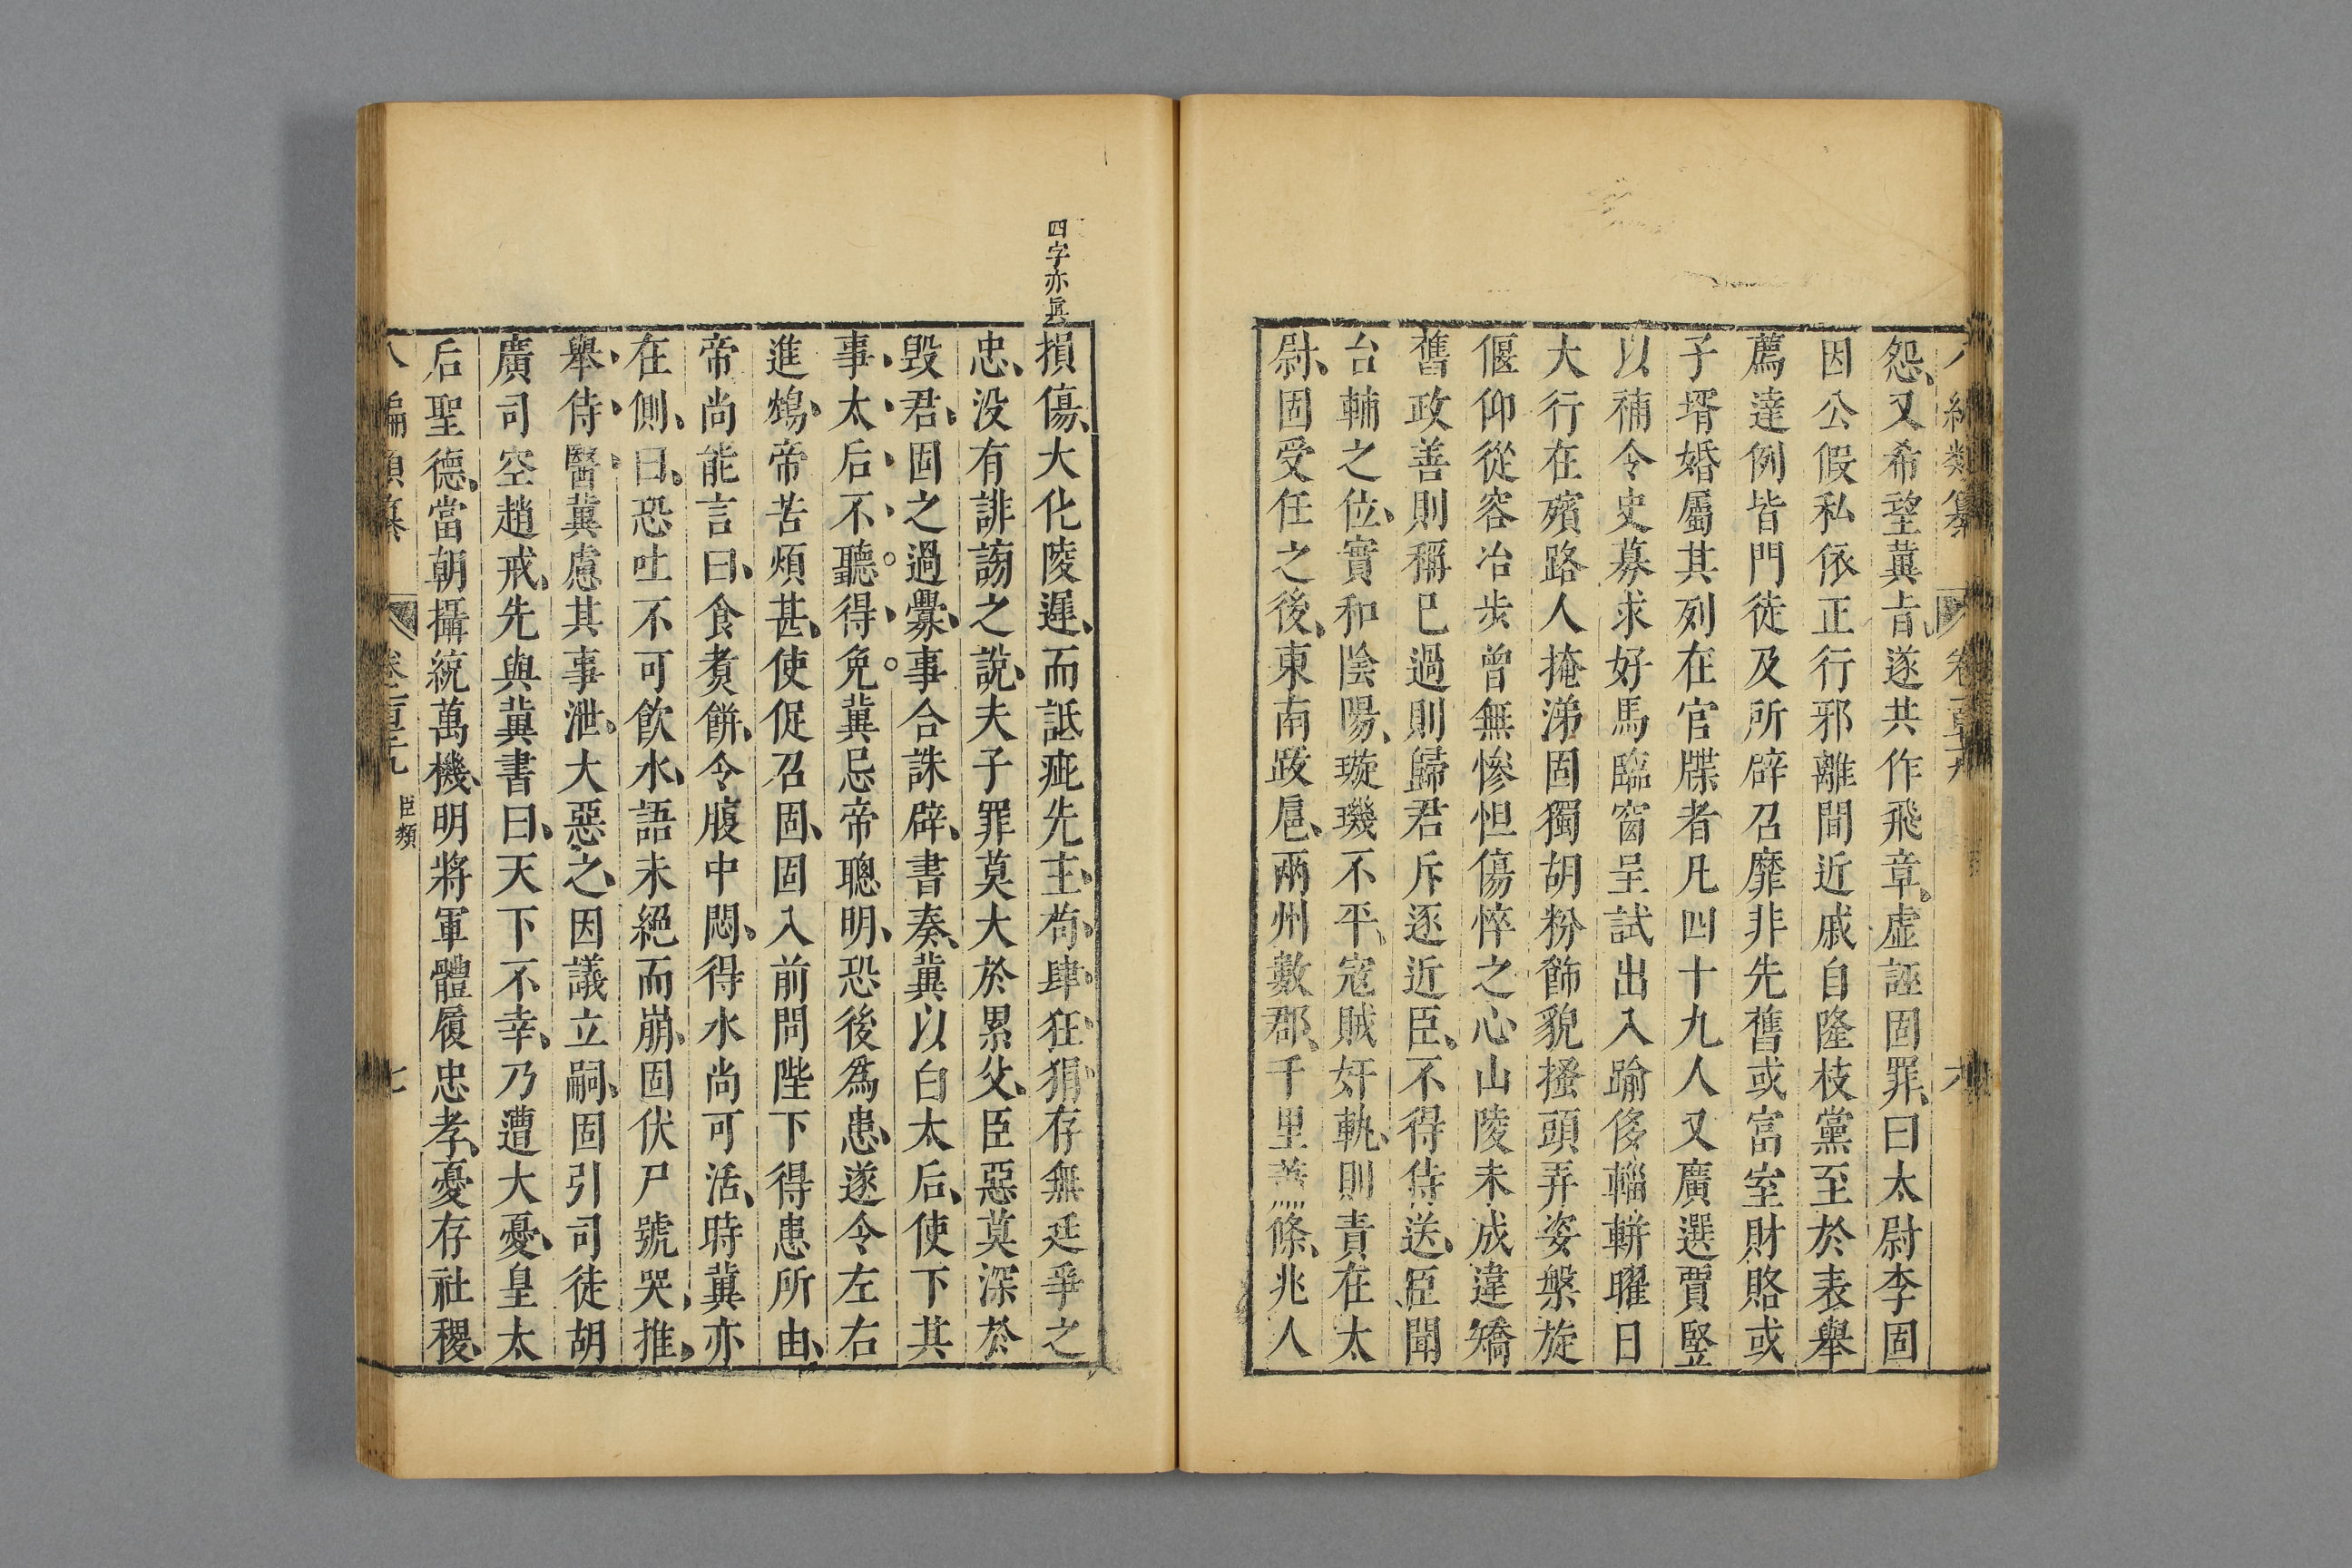 怨又希望冀旨遂共作飛章虛誣固罪曰太尉李固
因公假私依正行邪離間近戚自隆枝黨至於表舉
薦達例皆門徒及所辟召靡非先舊或富室財賂或
子壻婚屬其列在官牒者凡四十九人又廣選賈豎
以補令史募求好馬臨窗呈試出入踰侈輜軿曜日
大行在殯路人掩涕固獨胡粉飾貌搔頭弄姿槃旋
偃仰從容冶步曾無慘怛傷悴之心山陵未成違矯
舊政善則稱已過則歸君斥逐近臣不得侍送臣聞
台輔之位實和陰陽璇璣不平寇賊奸軌則責在太
尉固受任之後東南跋扈兩州數郡千里蕭條兆人
四字亦眞
損傷大化陵遲而詆疵先主苟肆狂狷存無廷爭之
忠没有誹謗之說夫子罪莫大於累父臣惡莫深於
毀君固之過釁事合誅辟書奏冀以白太后使下其
事太后不聽得免冀忌帝聰明恐後爲患遂令左右
進鴆帝苦煩甚使促召固固入前問陛下得患所由
帝尚能言曰食煑餅令腹中悶得水尚可活時冀亦
在側曰恐吐不可飲水語未絕而崩固伏尸號哭推
舉侍醫冀慮其事泄大惡之因議立嗣固引司徒胡
廣司空趙戒先與冀書曰天下不幸乃遭大憂皇太
后聖德當朝攝統萬機明將軍體履忠孝憂存社稷
臣類
七